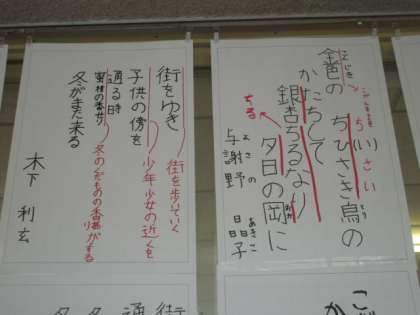 金色の
こんじき
ちひさき鳥の
ち(い)さい
とり
かたちして
銀杏ちるなり
ちる
夕日の岡に
おか
与謝野 晶子
よさの あきこ
街をゆき
街を歩いていく
子供の傍を
少年少女の近くを
通る時
蜜柑の香せり
冬のくだものの香りがする
冬がまた来る
木下 利玄
こ
か
街
通
冬